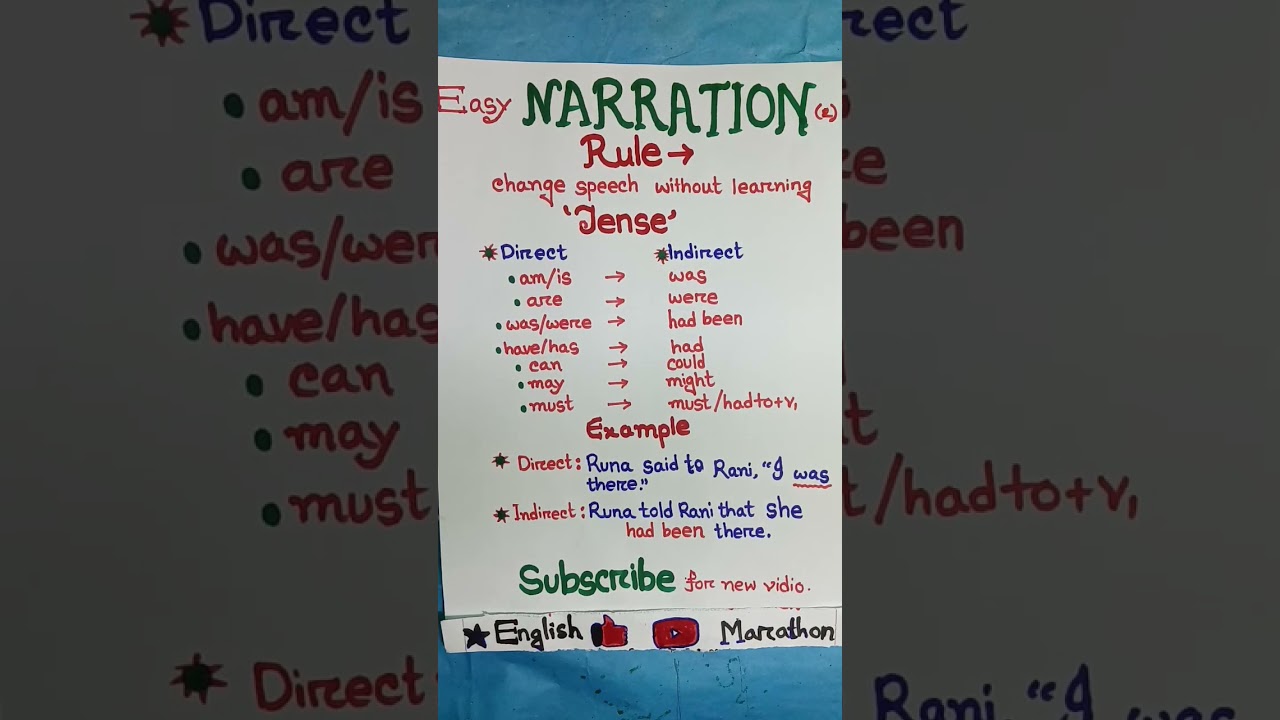 Easy NARRATION (2)
Rule →
change speech without learning
'Tense'
Direct Indirect
am/is → was
are → were
was/were → had been
have/has → had
can → could
may → might
must → must/had to+v₁
Example
Direct: Runa said to Rani, "I was
there."
Indirect: Runa told Rani that she
had been there.
Subscribe for new vidio.
English Marathon